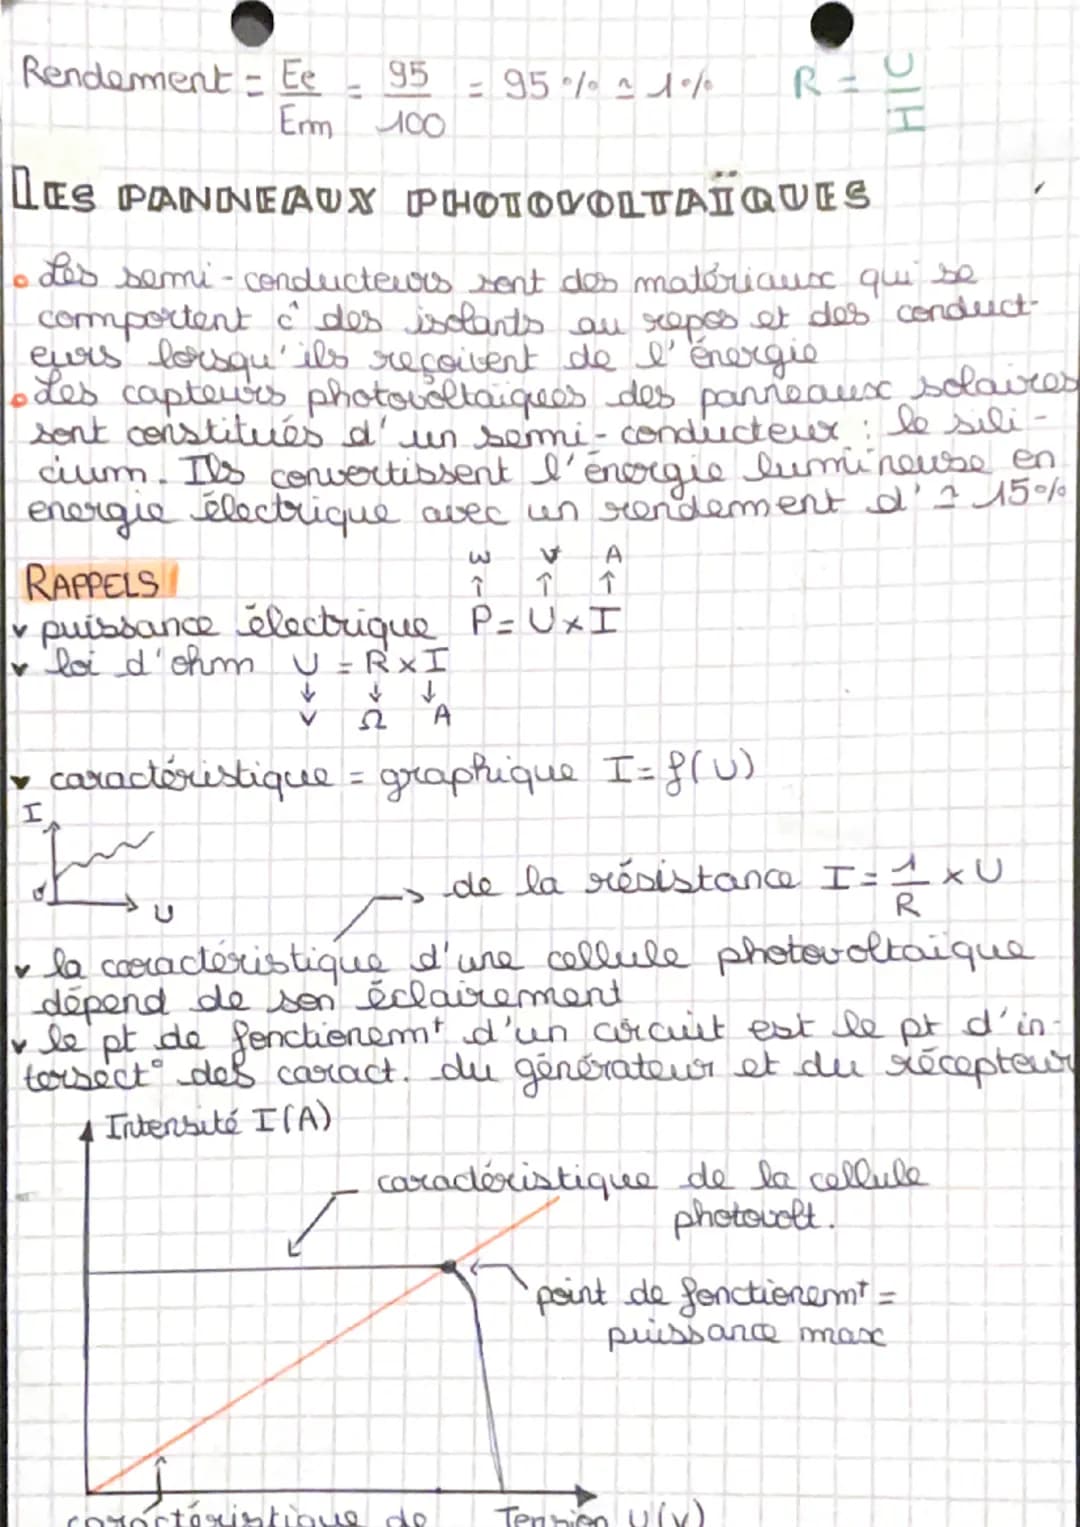 Rendement = Ee/Em = 95/100 = 95 % ≃ 1 % R = U/I
LES PANNEAUX PHOTOVOLTAÏQUES
• Les semi-conducteurs sont des matériaux qui se
comportent ĉ des isolants au repos et des conduct-
eurs lorsqu'ils reçoivent de l'énergie
• Les capteurs photovoltaïques des panneaux solaires
sont constitués d'un semi-conducteur : le sili-
cium. Ils convertissent l'énergie lumineuse en
energie électrique avec un rendement d' ≃ 15 %
W V A
↑ ↑ ↑
RAPPELS
puissance électrique P = U x I
loi d'ohm U = R x I
↓ ↓ ↓
V Ω A
caractéristique = graphique I = f(U)
I
0
U
→ de la résistance I = 1/R x U
la caractéristique d'une cellule photovoltaïque
dépend de son éclairement
le pt de fonctionemt d'un circuit est le pt d'in-
tersect° des caract. du générateur et du récepteur
Intensité I(A)
caractéristique de la cellule
photovolt.
point de fonctionemt =
puissance max
caractéristique de Tension U(V)